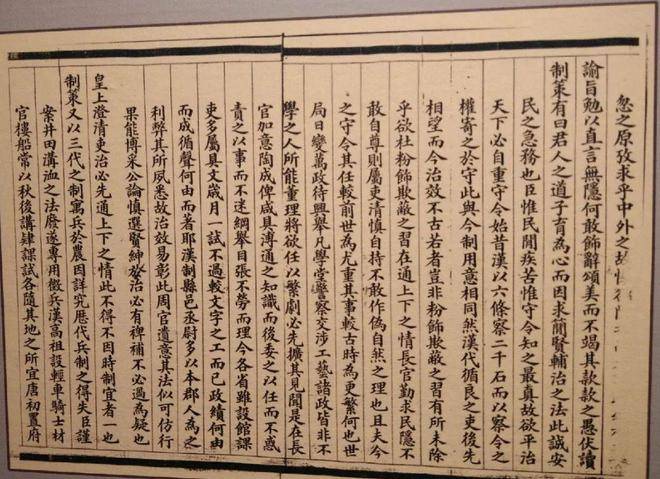 愆之原攷求乎中外之故
諭旨勉以直言無隱何敢飾辭頌美而不竭其款款之愚伏讀
制策有曰君人之道子育為心而因求簡賢輔治之法此誠安
民之急務也臣惟民間疾苦惟守令知之最真故欲平治
天下必自重守令始昔漢以六條察二千石而以察令之
權寄之於守此與今制用意相同然漢代循良之吏後先
相望而今治效不古若者豈非粉飾欺蔽之習有所未除
乎欲杜粉飾欺蔽之習在通上下之情長官勤求民隱不
敢自尊則屬吏清慎自持不敢作偽自然之理也且夫今
之守令其任較前世為尤重其事較古時為更繁何也世
局日變萬政待興舉凡學堂警察交涉工藝諸政皆非不
學之人所能董理將欲任以繁劇必先擴其見聞是在長
官加意陶成俾咸具溥通之知識而後委之以任而不惑
責之以事而不迷綱舉目張不勞而理今各省雖設館課
吏多屬具文歲月一試不過較文字之工而已政績何由
而成循聲何由而著耶漢制縣邑丞尉多以本郡人為之
利弊其所夙悉故治效易彰此周官遺意其法似可仿行
果能博采公論慎選賢紳於治必有裨補不必過為疑也
皇上澄清吏治必先通上下之情此不得不因時制宜者一也
制策又以三代之制寓兵於農因詳究歷代兵制之得失臣謹
案井田溝洫之法廢遂專用徵兵漢高祖設輕車騎士材
官樓船常以秋後講肄課試各隨其地之所宜唐初置府